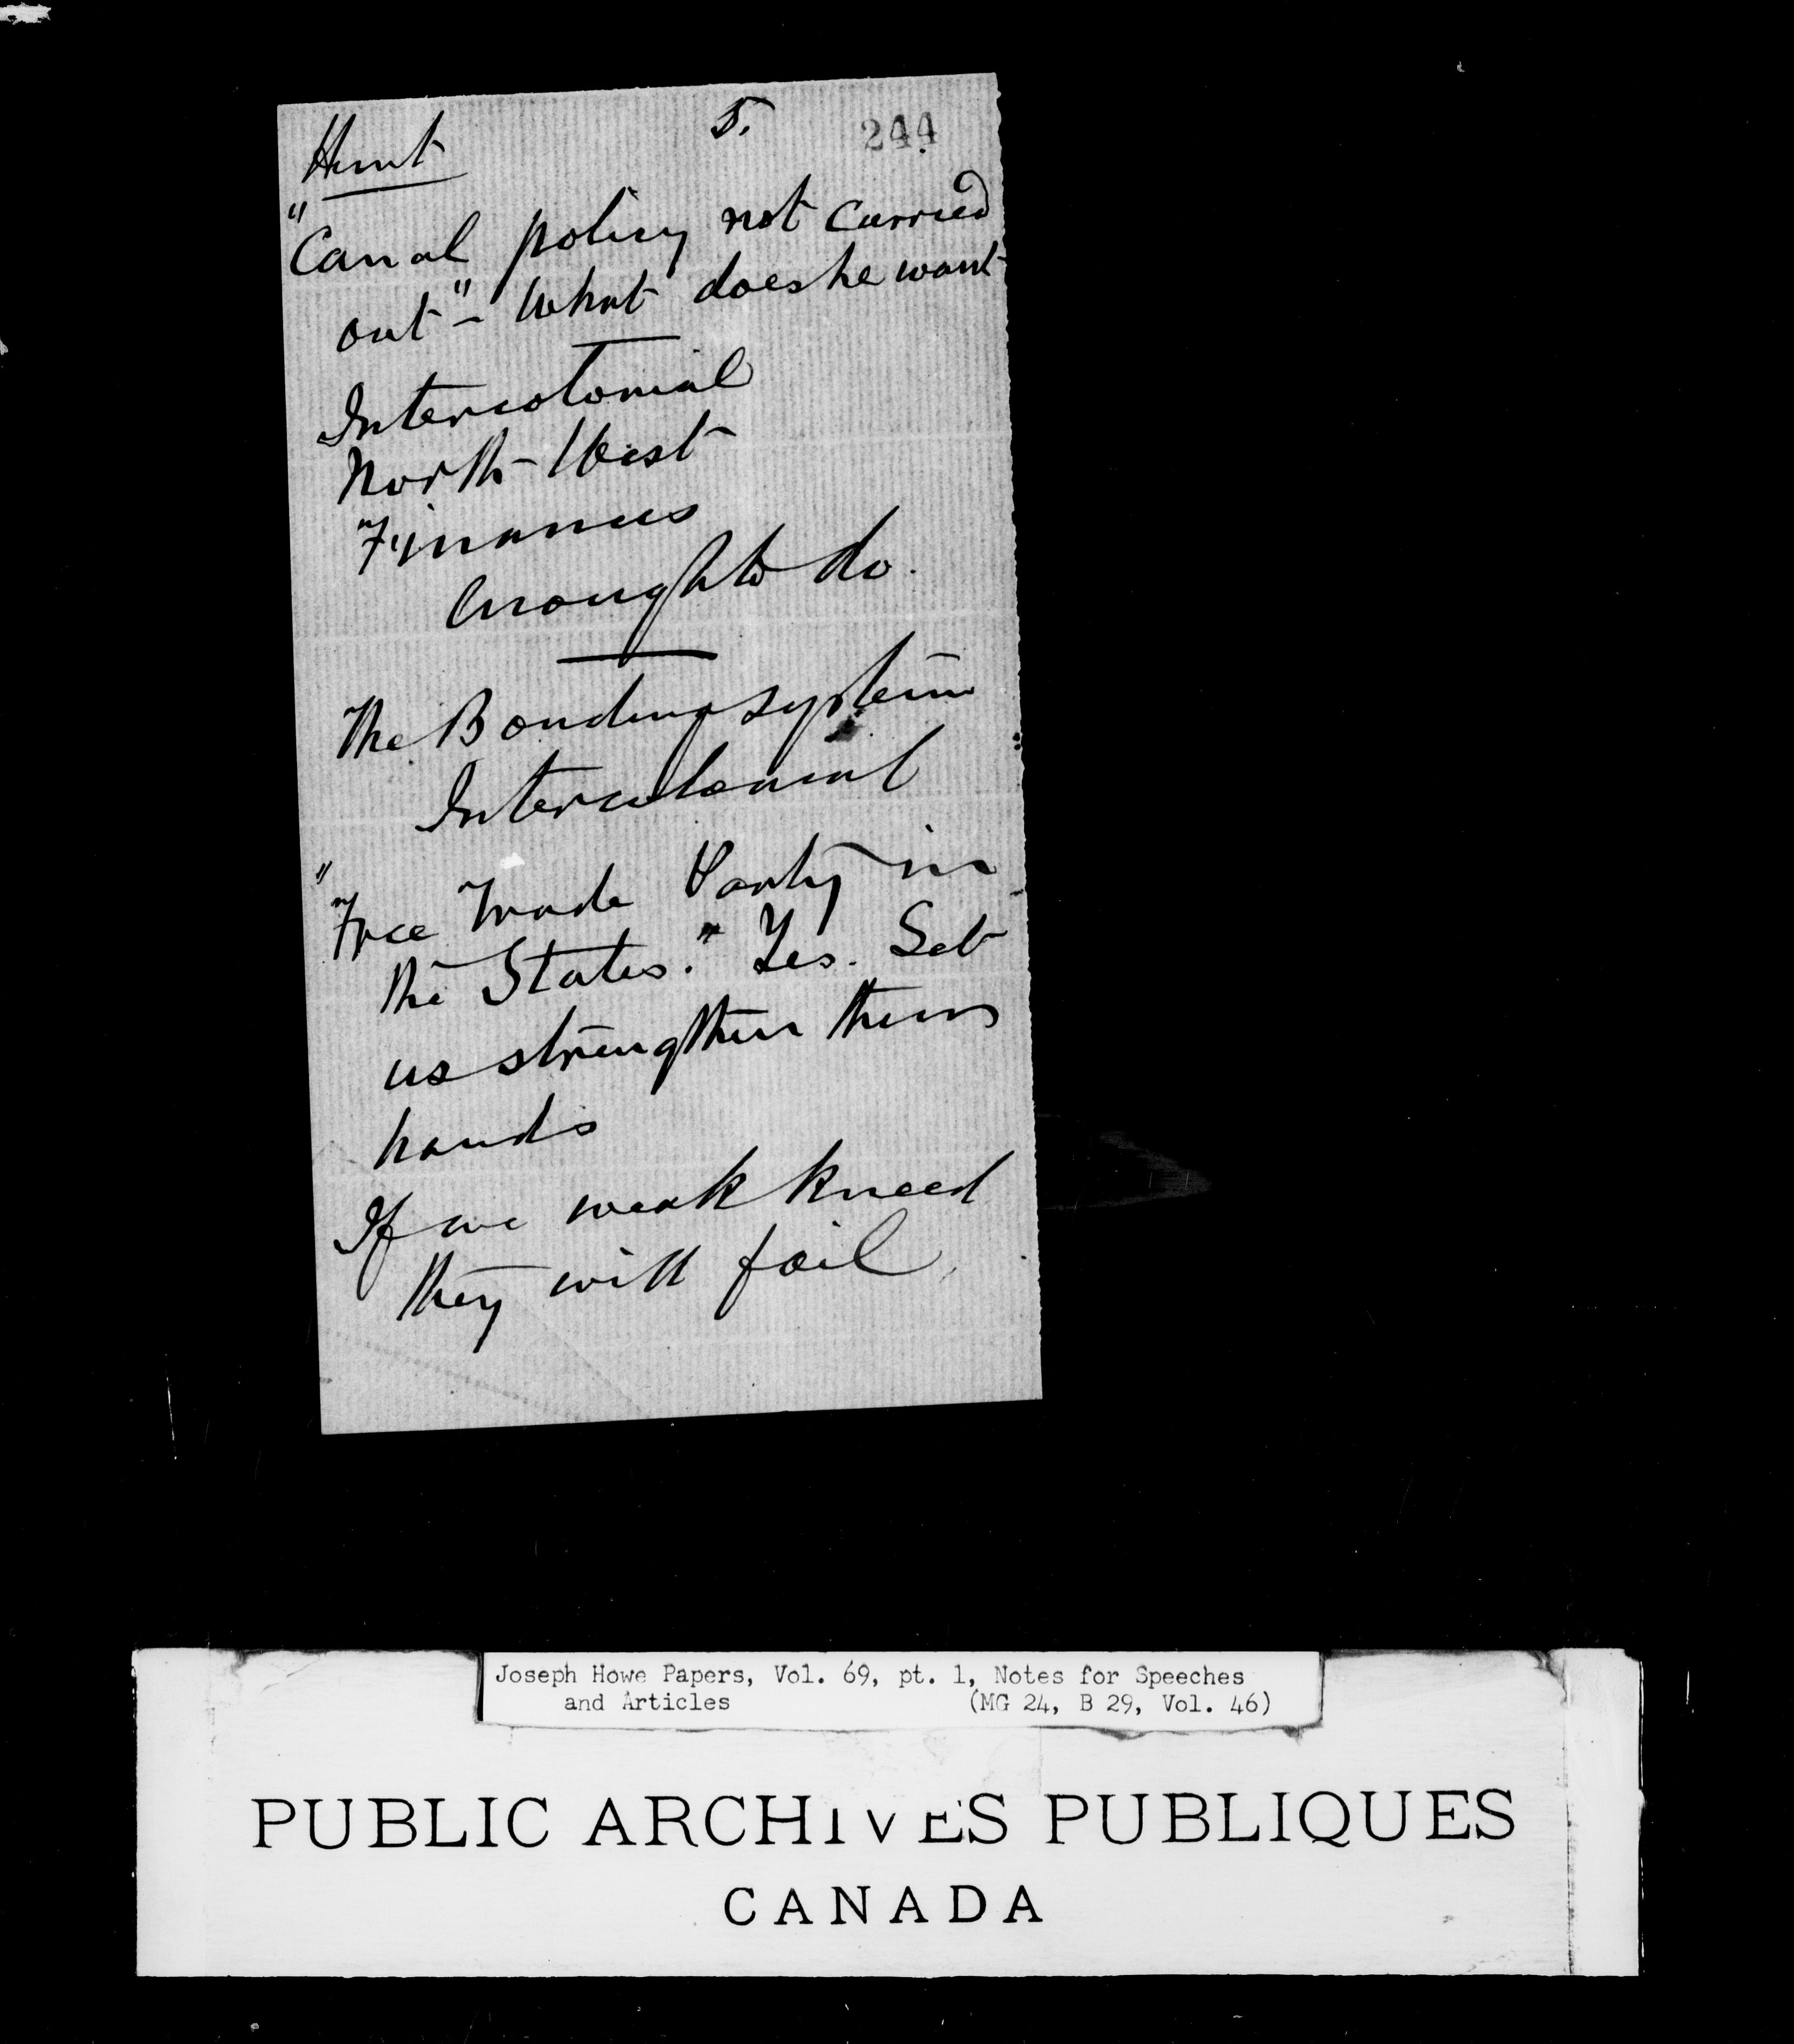 5.
244
Hunt
"Canal policy not carried
out" - What does he want
Intercolonial
North-West
Finances
enough to do.
The Bonding system
Intercolonial
"Free Trade Party in
the States." Yes. Let
us strengthen their
hands
If we weak kneed
they will fail
Joseph Howe Papers, Vol. 69, pt. 1, Notes for Speeches
and Articles (MG 24, B 29, Vol. 46)
PUBLIC ARCHIVES PUBLIQUES
CANADA